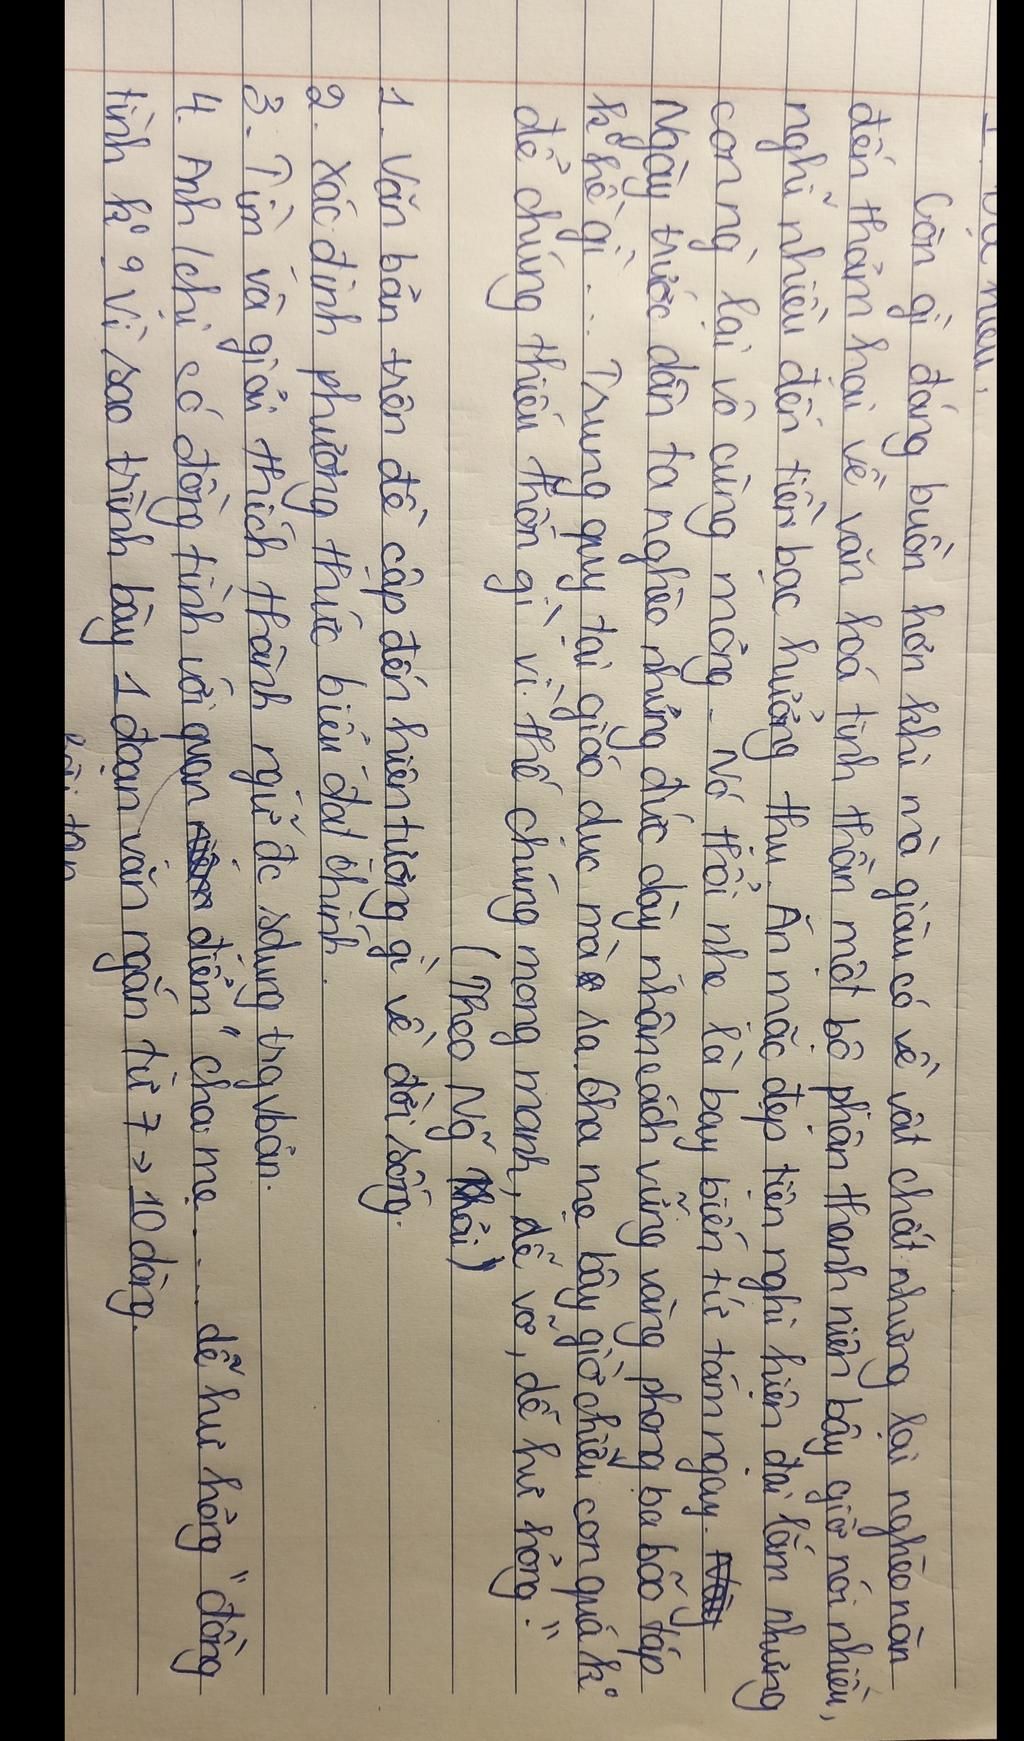 Còn gì đáng buồn hơn khi mà giàu có về vật chất nhưng lại nghèo nàn
đến thảm hại về văn hoá tinh thần một bộ phận thanh niên bây giờ nói nhiều,
nghĩ nhiều đến tiền bạc hưởng thụ. Ăn mặc đẹp tiện nghi hiện đại lắm nhưng
con ng lại vô cùng mỏng. Nó thổi nhẹ là bay biến tứ tán ngay.
Ngày trước dân ta nghèo nhưng đức dày nhân cách vững vàng phong ba bão táp
k hề gì... Trung quy tại giáo dục mà ra. Cha mẹ bây giờ chiều con quá k
để chúng thiếu thốn gì vì thế chúng mong manh, dễ vỡ, dễ hư hỏng."
(Theo Ng Khải)
1. Văn bản trên đề cập đến hiện tượng gì về đời sống.
2. Xác định phương thức biểu đạt chính.
3. Tìm và giải thích thành ngữ đc sdụng trg vbản.
4. Anh/chị có đồng tình với quan điểm "cha mẹ .... dễ hư hỏng" đồng
tình k? Vì sao trình bày 1 đoạn văn ngắn từ 7 → 10 dòng.